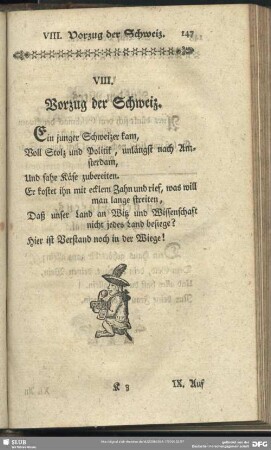 VIII. Vorzug der Schweiz. 147
VIII.
Vorzug der Schweiz.
Ein junger Schweizer kam,
Voll Stolz und Politik, unlängst nach Am-
sterdam,
Und sahe Käse zubereiten.
Er kostet ihn mit ecklem Zahn und rief, was will
man lange streiten,
Daß unser Land an Witz und Wissenschaft
nicht jedes Land besiege?
Hier ist Verstand noch in der Wiege!
K 3 IX. Auf
SLUB
DFG